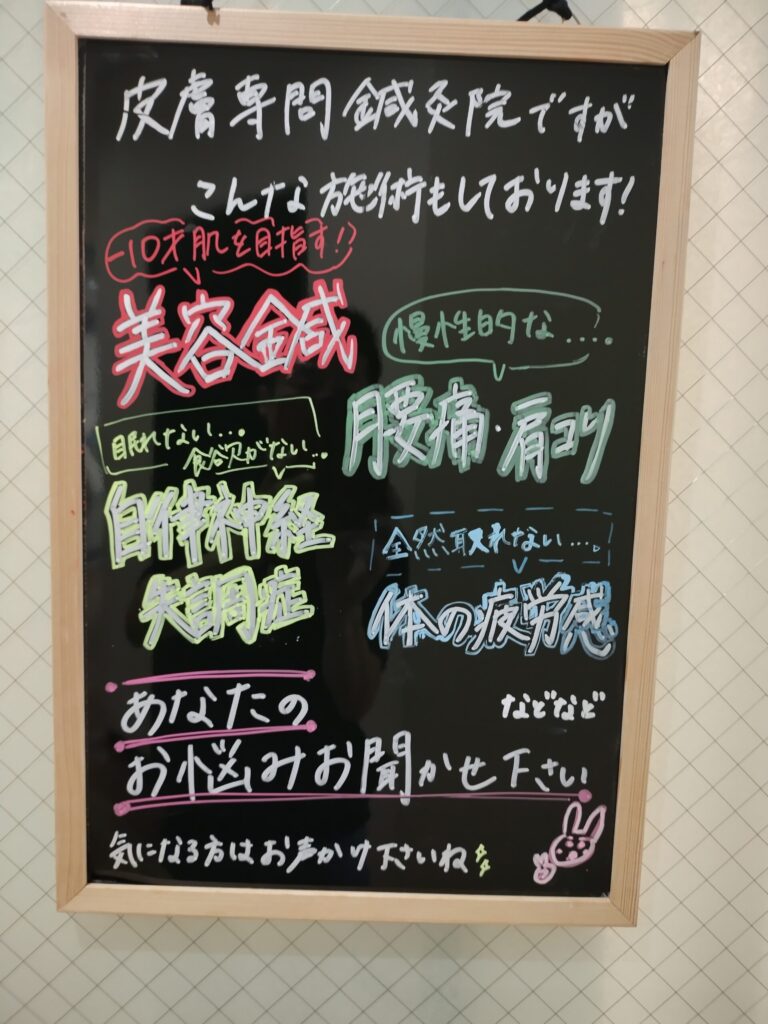 皮膚専問鍼灸院ですが
こんな施術もしております!
-10才肌を目指す!?
美容鍼
慢性的な....。
腰痛・肩コリ
眠れない...。
食欲がない...
自律神経
失調症
全然取れない...。
体の疲労感
などなど
あなたの
お悩みお聞かせ下さい
気になる方はお声かけ下さいね